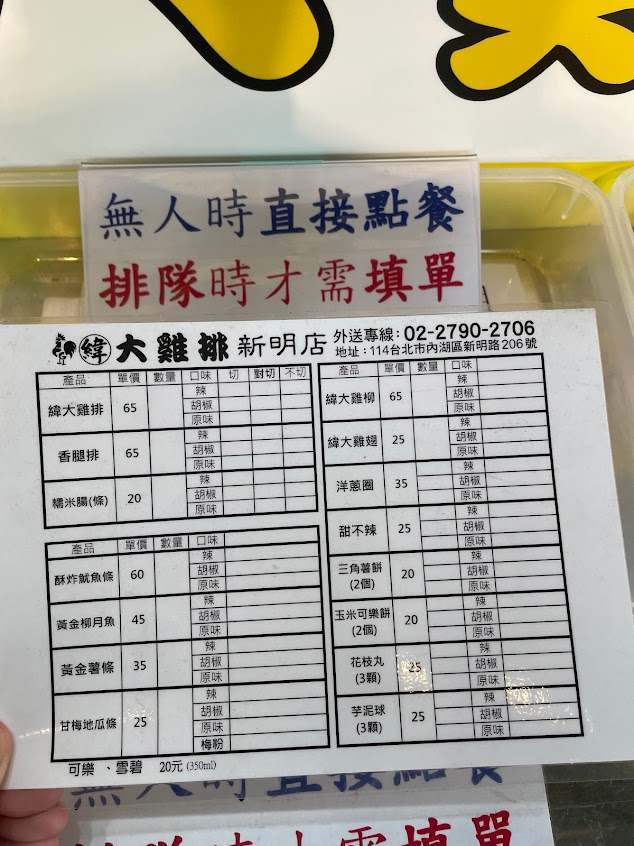 無人時直接點餐
排隊時才需填單
緯 大雞排 新明店 外送專線:02-2790-2706
地址:114台北市內湖區新明路206號
產品 單價 數量 口味 切 對切 不切
緯大雞排 65 辣
胡椒
原味
香腿排 65 辣
胡椒
原味
糯米腸(條) 20 辣
胡椒
原味
產品 單價 數量 口味
酥炸魷魚條 60 辣
胡椒
原味
黃金柳月魚 45 辣
胡椒
原味
黃金薯條 35 辣
胡椒
原味
甘梅地瓜條 25 辣
胡椒
原味
梅粉
可樂、雪碧 20元(350ml)
產品 單價 數量 口味
緯大雞柳 65 辣
胡椒
原味
緯大雞翅 25 辣
胡椒
原味
洋蔥圈 35 辣
胡椒
原味
甜不辣 25 辣
胡椒
原味
三角薯餅
(2個) 20 辣
胡椒
原味
玉米可樂餅
(2個) 20 辣
胡椒
原味
花枝丸
(3顆) 25 辣
胡椒
原味
芋泥球
(3顆) 25 辣
胡椒
原味
無人時直接點餐
排隊時才需填單